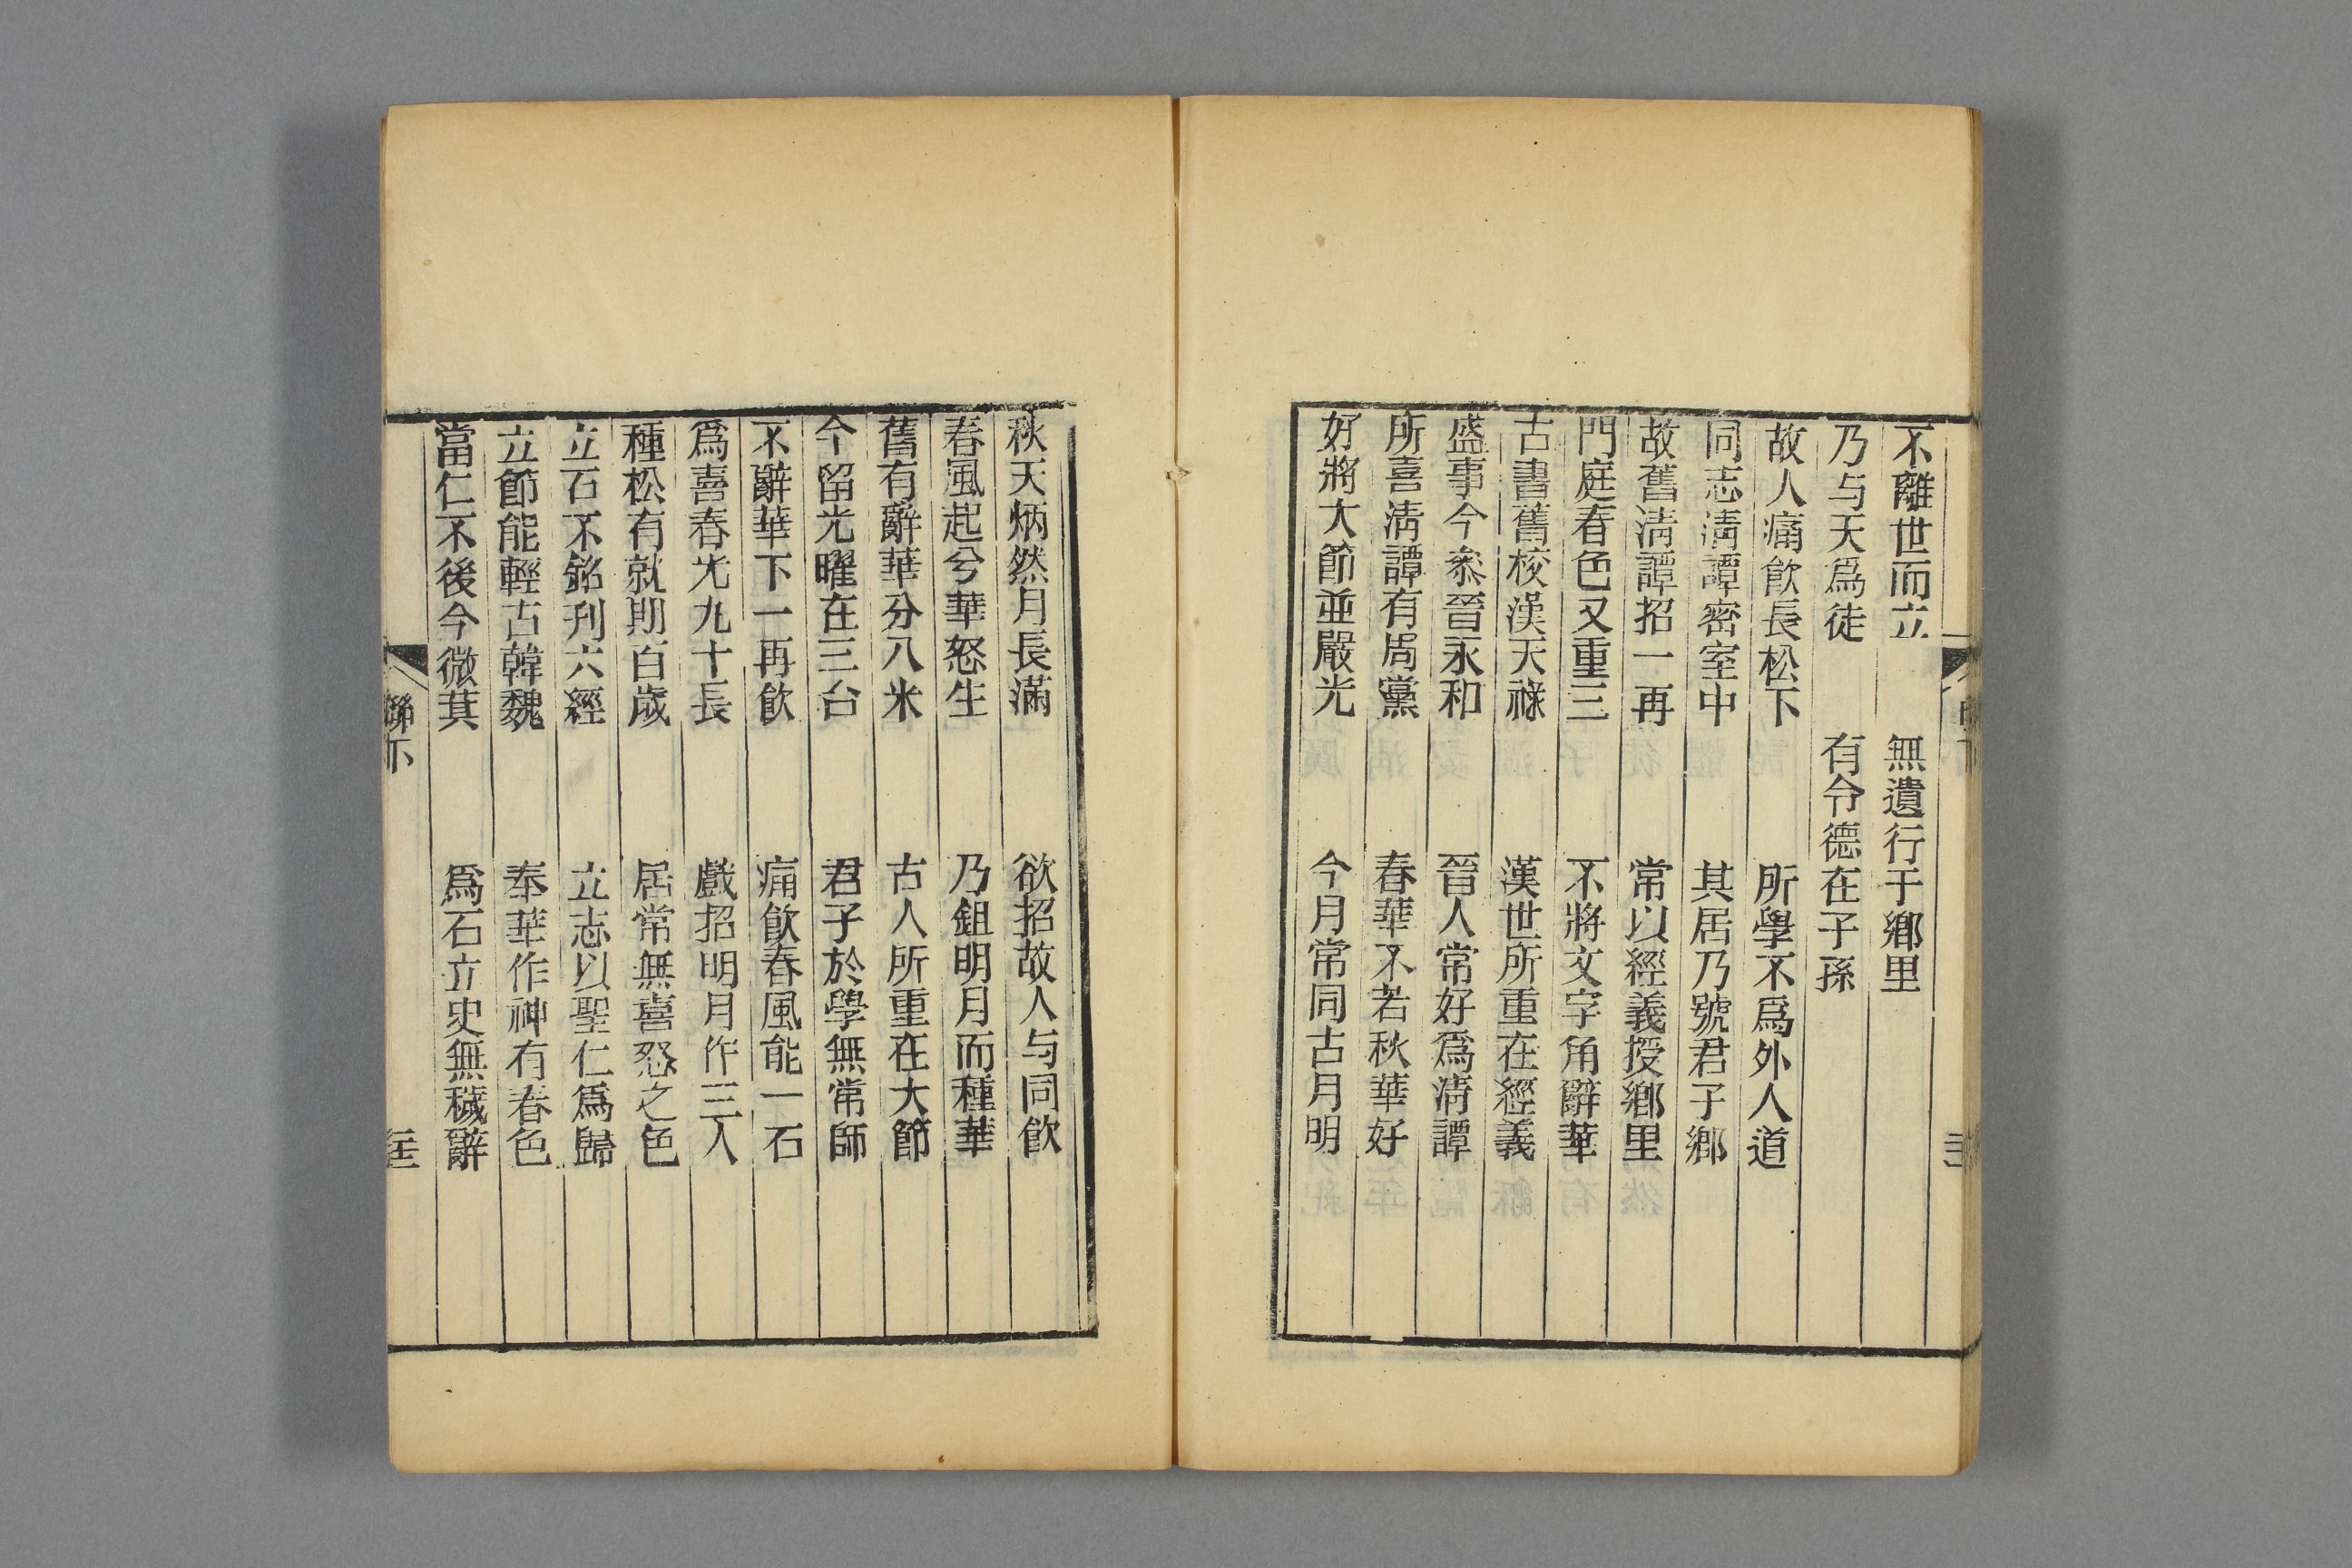 不離世而立　無遺行于鄉里
乃与天爲徒　有令德在子孫
故人痛飮長松下　所學不爲外人道
同志淸譚密室中　其居乃號君子鄉
故舊淸譚招一再　常以經義授鄉里
門庭春色又重三　不將文字角辭華
古書舊校漢天祿　漢世所重在經義
盛事今叅晉永和　晉人常好爲淸譚
所喜淸譚有周黨　春華不若秋華好
好將大節並嚴光　今月常同古月明
秋天炳然月長滿　欲招故人与同飮
春風起兮華怒生　乃鉏明月而種華
舊有辭華分八米　古人所重在大節
今留光曜在三台　君子於學無常師
不辭華下一再飮　痛飮春風能一石
爲喜春光九十長　戲招明月作三人
種松有就期百歲　居常無喜怒之色
立石不銘刊六經　立志以聖仁爲歸
立節能輕古韓魏　奉華作神有春色
當仁不後今微萁　爲石立史無穢辭
聯下